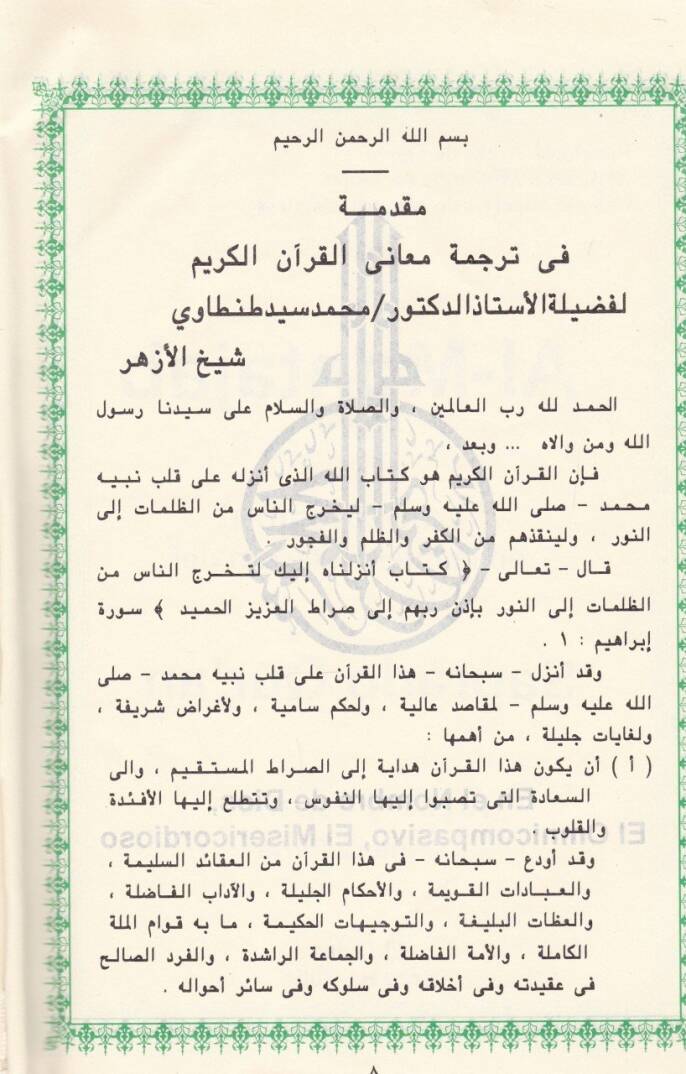 بسم الله الرحمن الرحيم
مقدمـــة
فى ترجمة معانى القرآن الكريم
لفضيلة الأستاذ الدكتور/محمد سيد طنطاوي
شيخ الأزهر
الحمد لله رب العالمين ، والصلاة والسلام على سيدنا رسول
الله ومن والاه ... وبعد ،
فـإن القـرآن الكريم هو كـتـاب الله الذى أنزله على قلب نبـيـه
محـمـد - صلى الله عليه وسلم - ليخرج الناس من الظلمات إلى
النور ، ولينقذهم من الكفر والظلم والفجور .
قـال - تعـالى - ﴿ كـتـاب أنزلناه إليك لتـخـرج الناس من
الظلمات إلى النور بإذن ربهم إلى صراط العزيز الحميد ﴾ سورة
إبراهيم : ١ .
وقد أنزل - سبحانه - هذا القرآن على قلب نبيه محمد - صلى
الله عليه وسلم - لمقاصد عالية ، ولحكم سامية ، ولأغراض شريفة ،
ولغايات جليلة ، من أهمها :
( أ ) أن يكون هذا القـرآن هداية إلى الصراط المستـقـيم ، والى
السعادة التى تصبوا إليها النفوس ، وتتطلع إليها الأفئدة
والقلوب .
وقد أودع - سبحانه - فى هذا القرآن من العقائد السليمة ،
والعـبـادات القـويمة ، والأحكام الجليلة ، والآداب الفـاضلة ،
والعظات البليغة ، والتوجيهات الحكيمة ، ما به قوام الملة
الكاملة ، والأمة الفاضلة ، والجماعة الراشدة ، والفرد الصالح
فى عقيدته وفى أخلاقه وفى سلوكه وفى سائر أحواله .
En el Nombre de Dios,
El Omnicompasivo, El Misericordioso
٨